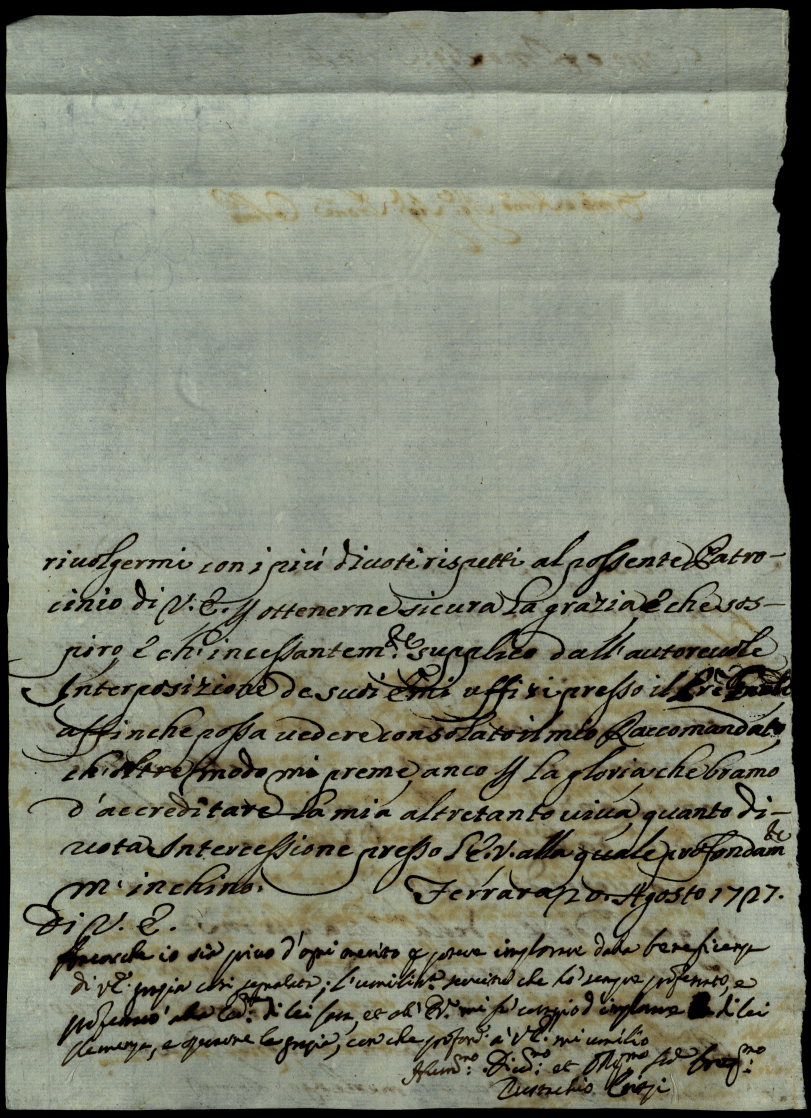 rivolgermi con i più divoti rispetti al possente Patro-
cinio di V. E. p ottenerne sicura la grazia, che sos-
piro, e ch' incessantem.te supplico dall' autorevole
Interposizione de suoi uffizi presso il
affinche possa vedere consolato il mio Raccomandato,
ch' oltre modo mi preme, anco p la gloria, che bramo
d'accreditare la mia altretanto viva, quanto di-
vota Intercessione presso l'E.V. alla quale profondam.te
m' inchino. Ferrara 20. Agosto 1727.
Di V. E.
Ancorche io sia privo d'ogni merito p potere implorare dalla beneficenza
di V.E. grazia così segnalata, l'umiliss.a servitù che hò sempre professato, e
professo alla di lei Casa, et all' E.V. mi fà coraggio d'implorare di lei
clemenza, e sperarne le grazie, con che profon. à V.E. mi umilio
Um.mo Div.mo et Obl.mo